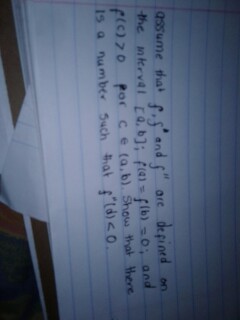 assume that f, f' and f'' are defined on
the interval [a, b]; f(a) = f(b) = 0; and
f(c) > 0 for c ∈ (a, b). Show that there
is a number such that f''(d) < 0.